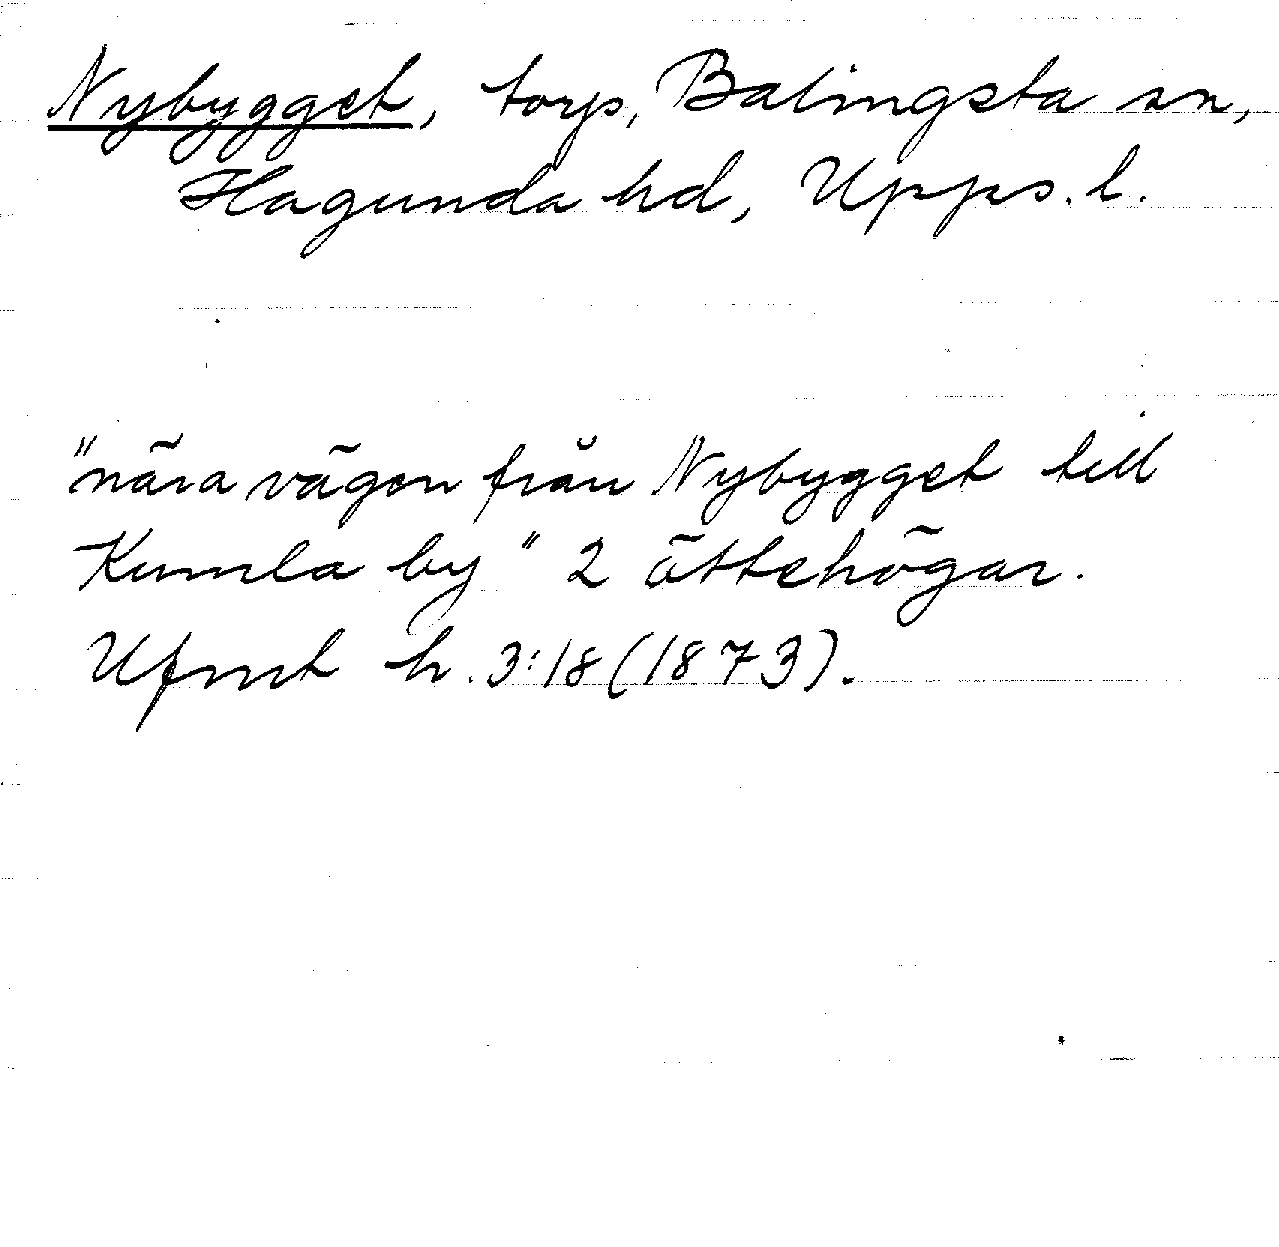 Nybygget, torp, Balingsta sn,
Hagunda hd, Upps. l.
"nära vägen från Nybygget till
Kumla by" 2 ättehögar.
Ufmt h. 3:18 (1873).